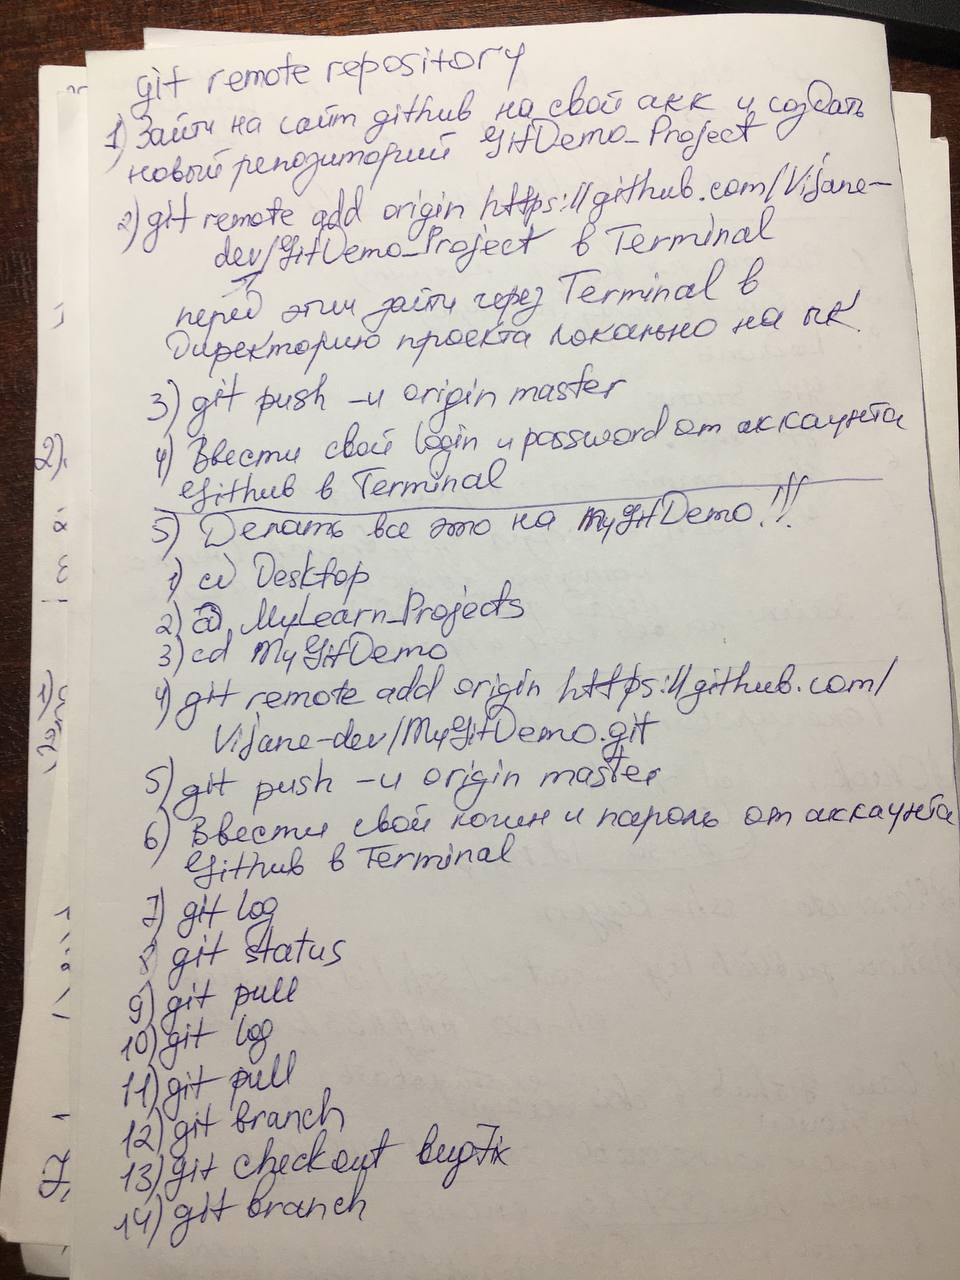 git remote repository
1) Зайти на сайт github на свой акк и создать
новый репозиторий GitDemo_Project
2) git remote add origin https://github.com/Vijane-
dev/GitDemo_Project в Terminal
перед этим зайти через Terminal в
Директорию проекта локально на пк.
3) git push -u origin master
4) Ввести свой login и password от аккаунта
Github в Terminal
5) Делать все это на MyGitDemo!!!
1) cd Desktop
2) cd MyLearn_Projects
3) cd MyGitDemo
4) git remote add origin https://github.com/
Vijane-dev/MyGitDemo.git
5) git push -u origin master
6) Ввести свой логин и пароль от аккаунта
Github в Terminal
7) git log
8) git status
9) git pull
10) git log
11) git pull
12) git branch
13) git checkout bugFix
14) git branch
2)
1)